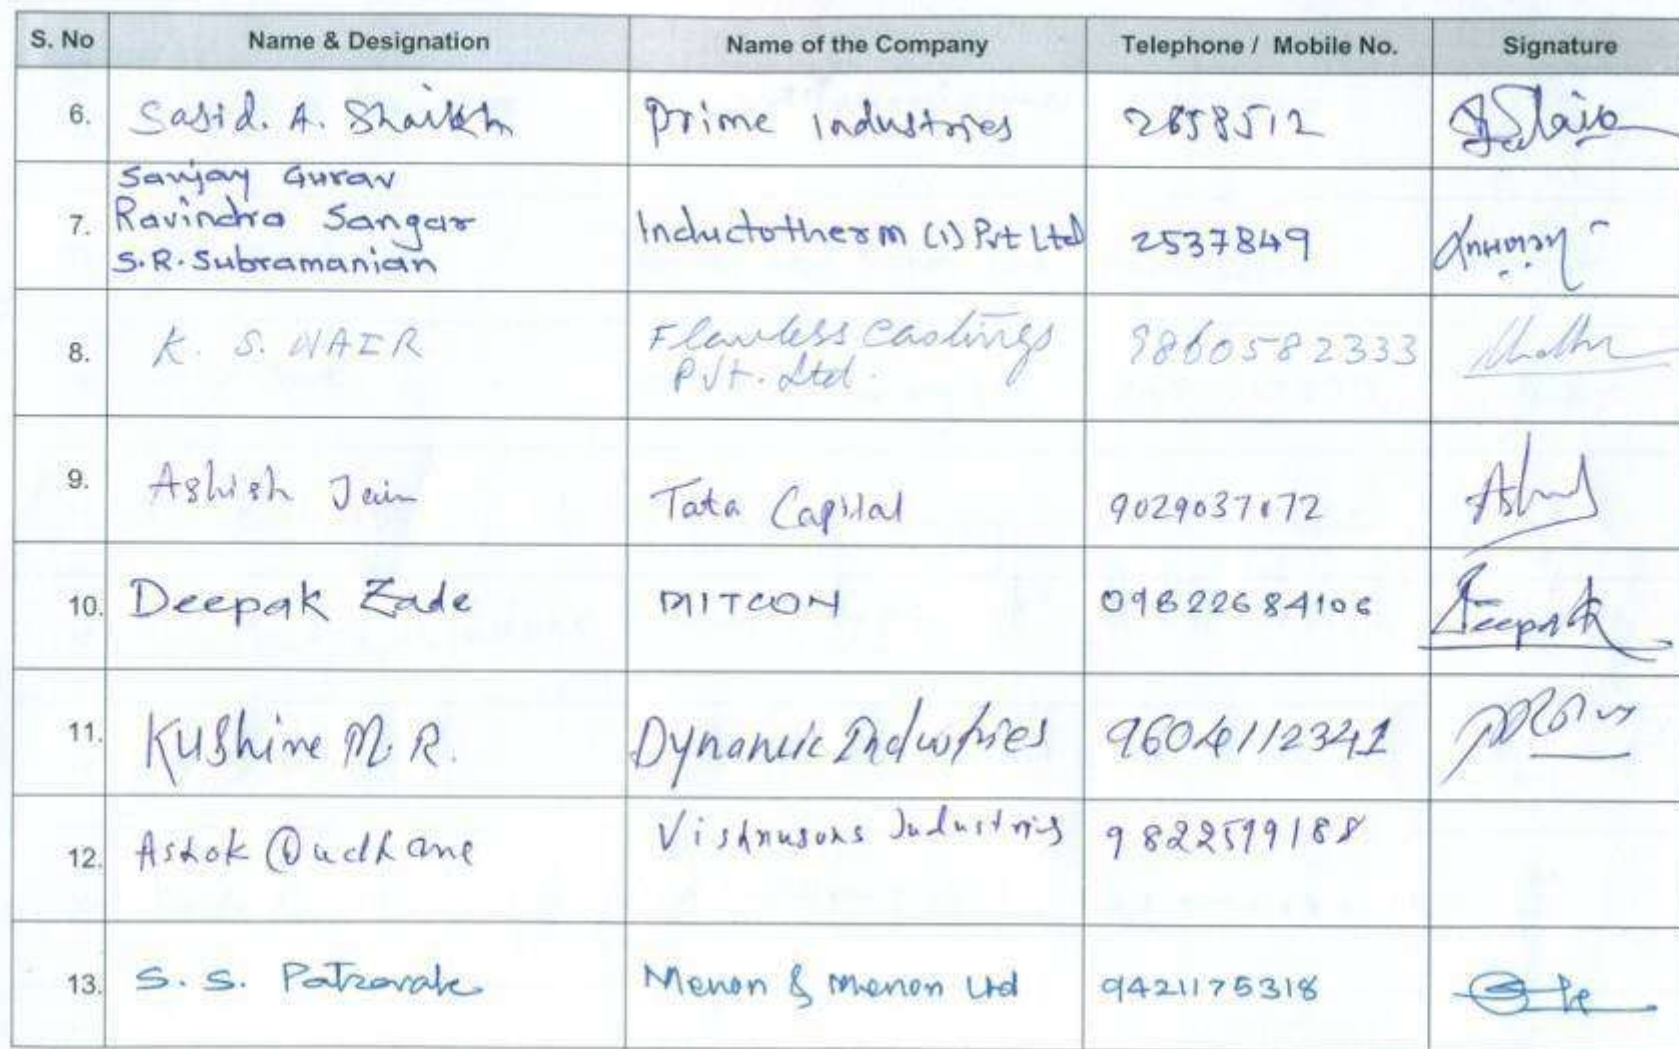 S. No Name & Designation Name of the Company Telephone / Mobile No. Signature
6. Sajid. A. Shaikh Prime Industries 2658512
Sanjay Gurav
7. Ravindra Sangar Inductotherm (I) Pvt Ltd 2537849
S.R. Subramanian
8. K. S. NAIR Flawless Castings 9860582333
Pvt. Ltd.
9. Ashish Jain Tata Capital 9029037072
10. Deepak Zade MITCON 09822684106 Deepak
11. Kushire M. R. Dynamic Industries 9604112341
12. Ashok Dudhane Vishnusons Industries 9822519188
13. S. S. Menon & Menon Ltd 9421175318